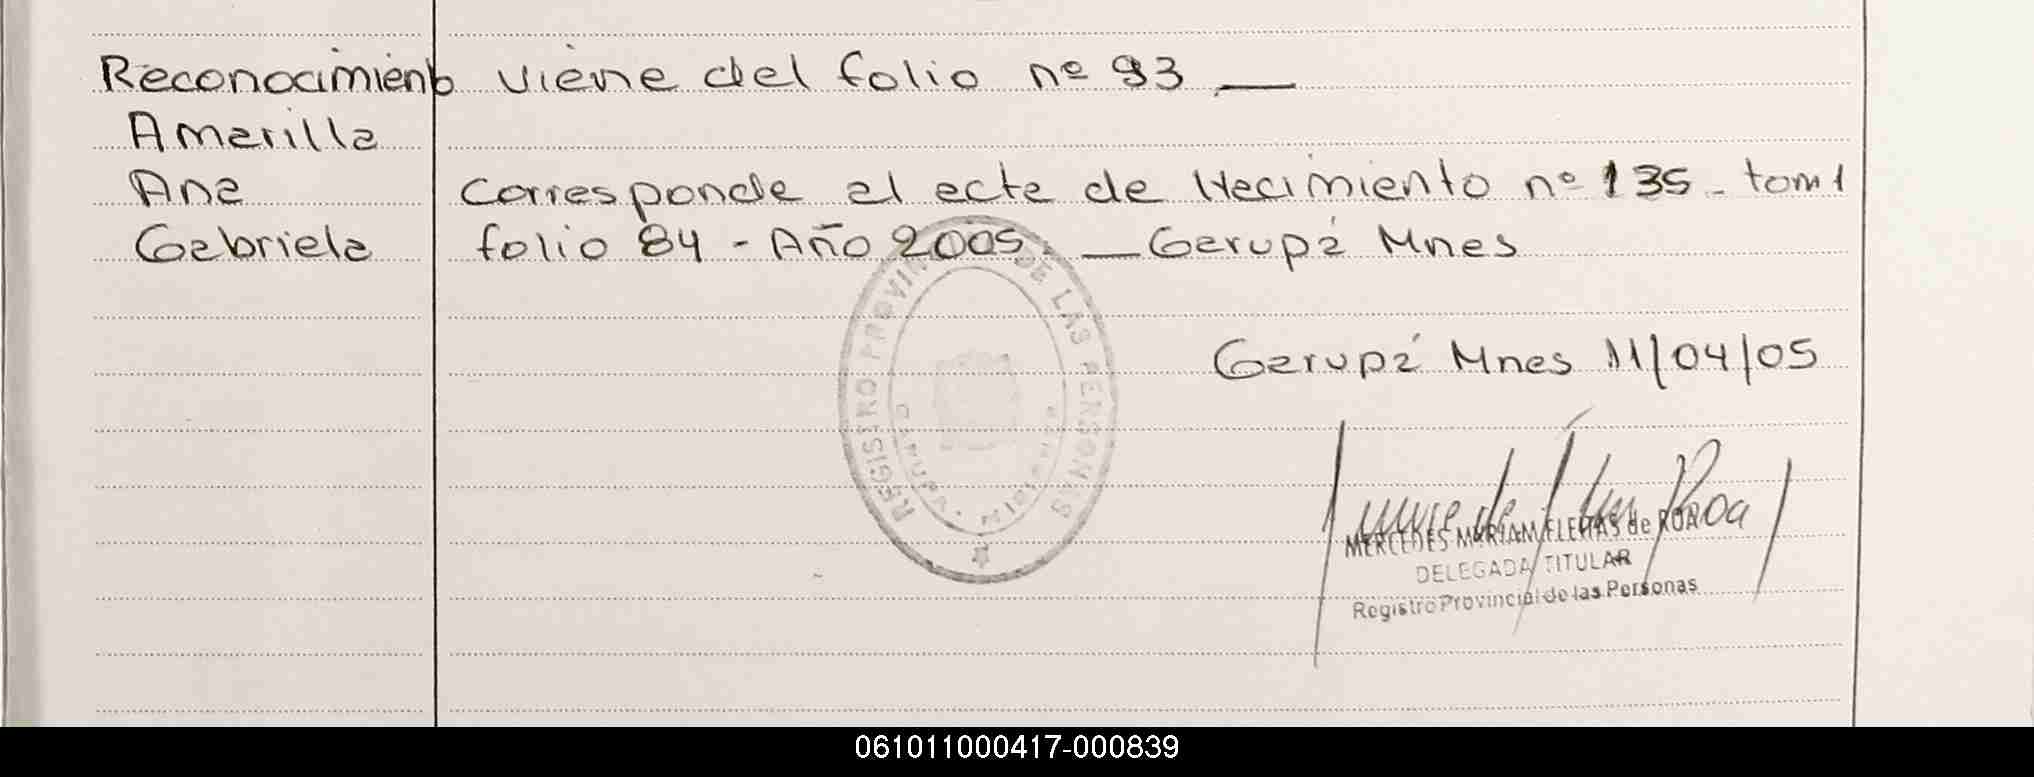 Reconocimiento viene del folio nº 93
Amarilla
Ana Corresponde al acta de Nacimiento nº 135 - tom 1
Gabriela folio 84 - Año 2005. Garupá Mnes
REGISTRO PROVINCIAL DE LAS PERSONAS
GARUPA - MISIONES
Garupá Mnes 11/04/05
MERCEDES MYRIAM FLEITAS de ROA
DELEGADA TITULAR
Registro Provincial de las Personas
061011000417-000839